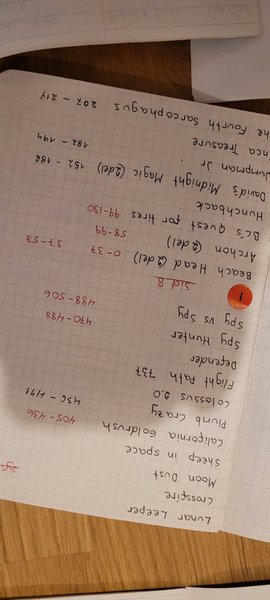 Lunar Leeper
Crossfire
Moon Dust
Sheep in space
California Goldrush
Plumb Crazy 405-436
Colossus 2.0
Flight Path 737
Defender
Spy Hunter 470-488
Spy vs Spy 488-506
1
Sid B
Beach Head (2del) 0-37
Archon (2del) 37-58
Bc's Quest for tires 58-99
Hunchback 99-130
David's Midnight Magic (2del) 152-182
Jumpman Jr 182-194
nca Treasure
he Fourth Sarcophagus 207-219